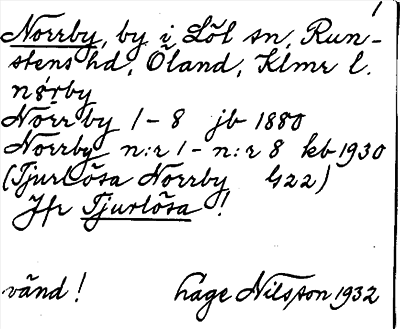 Norrby, by i Löt sn, Run-
stens hd, Öland, Klmr l.
nørby
Norrby 1-8 jb 1880
Norrby n:r 1 - n:r 8 kb 1930
(Tjurlösa Norrby G22)
Jfr Tjurlösa !
vänd! håge Nilsson 1932